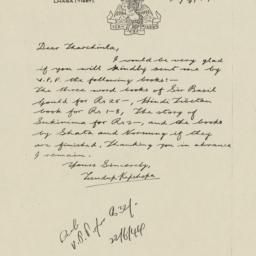 LHASA (TIBET).
Dear Tharchinla,
I would be very glad
if you will kindly sent me by
V.P.P. the following books:-
The three word books of Sir Basil
Gould for Rs 25-, Hindi Tibetan
book for Rs 1-8, The story of
Sukinima for Rs 2-, and the books
by Shata and if they
are finished. Thanking you in advance
I remain.
Yours Sincerely,
V.P.P. for
22/6/44